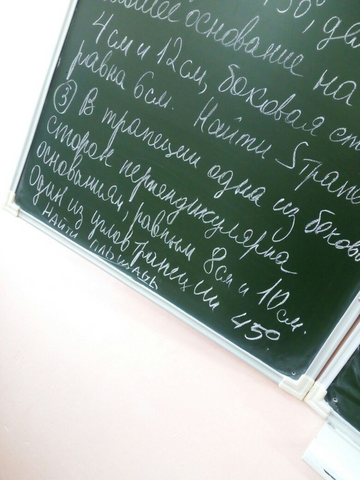 150°,
основание на
4 см и 12 см, боковая
равна 6 см. Найти S
③ В трапеции одна из
сторон перпендикулярна
основаниям, равным 8 см и 10 см.
Один из углов трапеции 45°
Найти площадь